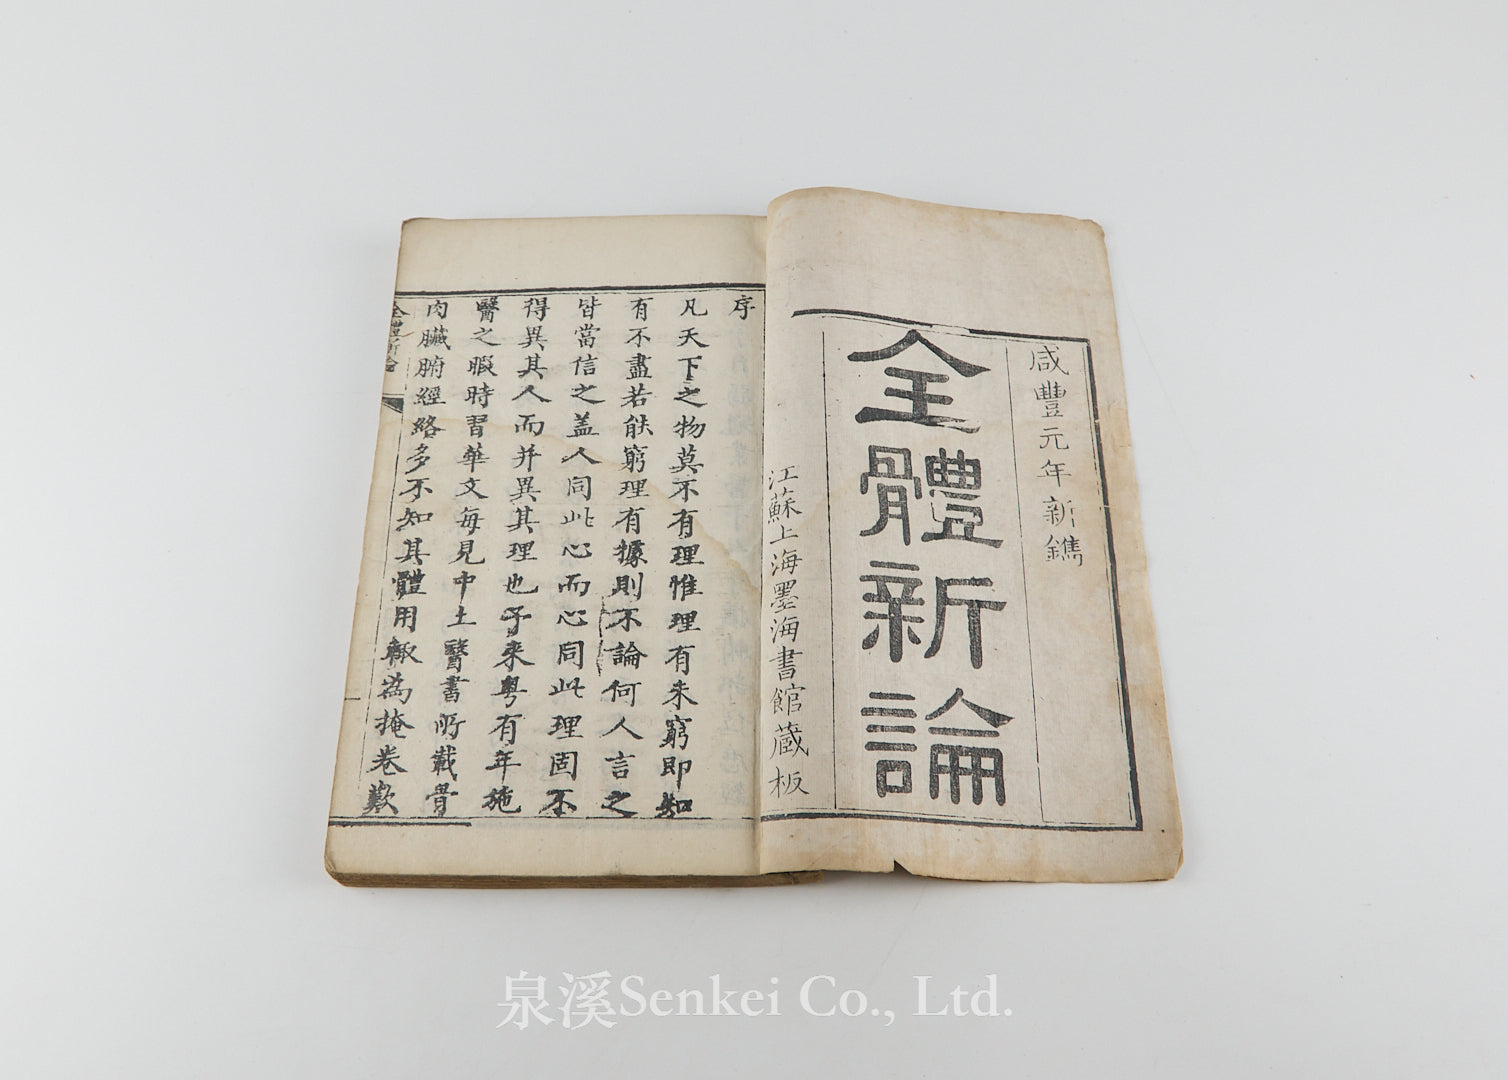 咸豐元年新鐫
全體新論
江蘇上海墨海書館蔵板
序
凡天下之物莫不有理惟理有未窮即知
有不盡若能窮理有據則不論何人言之
皆當信之盖人同此心而心同此理固不
得異其人而并異其理也予来粤有年施
醫之暇時習華文每見中土醫書所載骨
肉臟腑經絡多不知其體用輙為掩卷歎
全體新論
泉溪Senkei Co., Ltd.